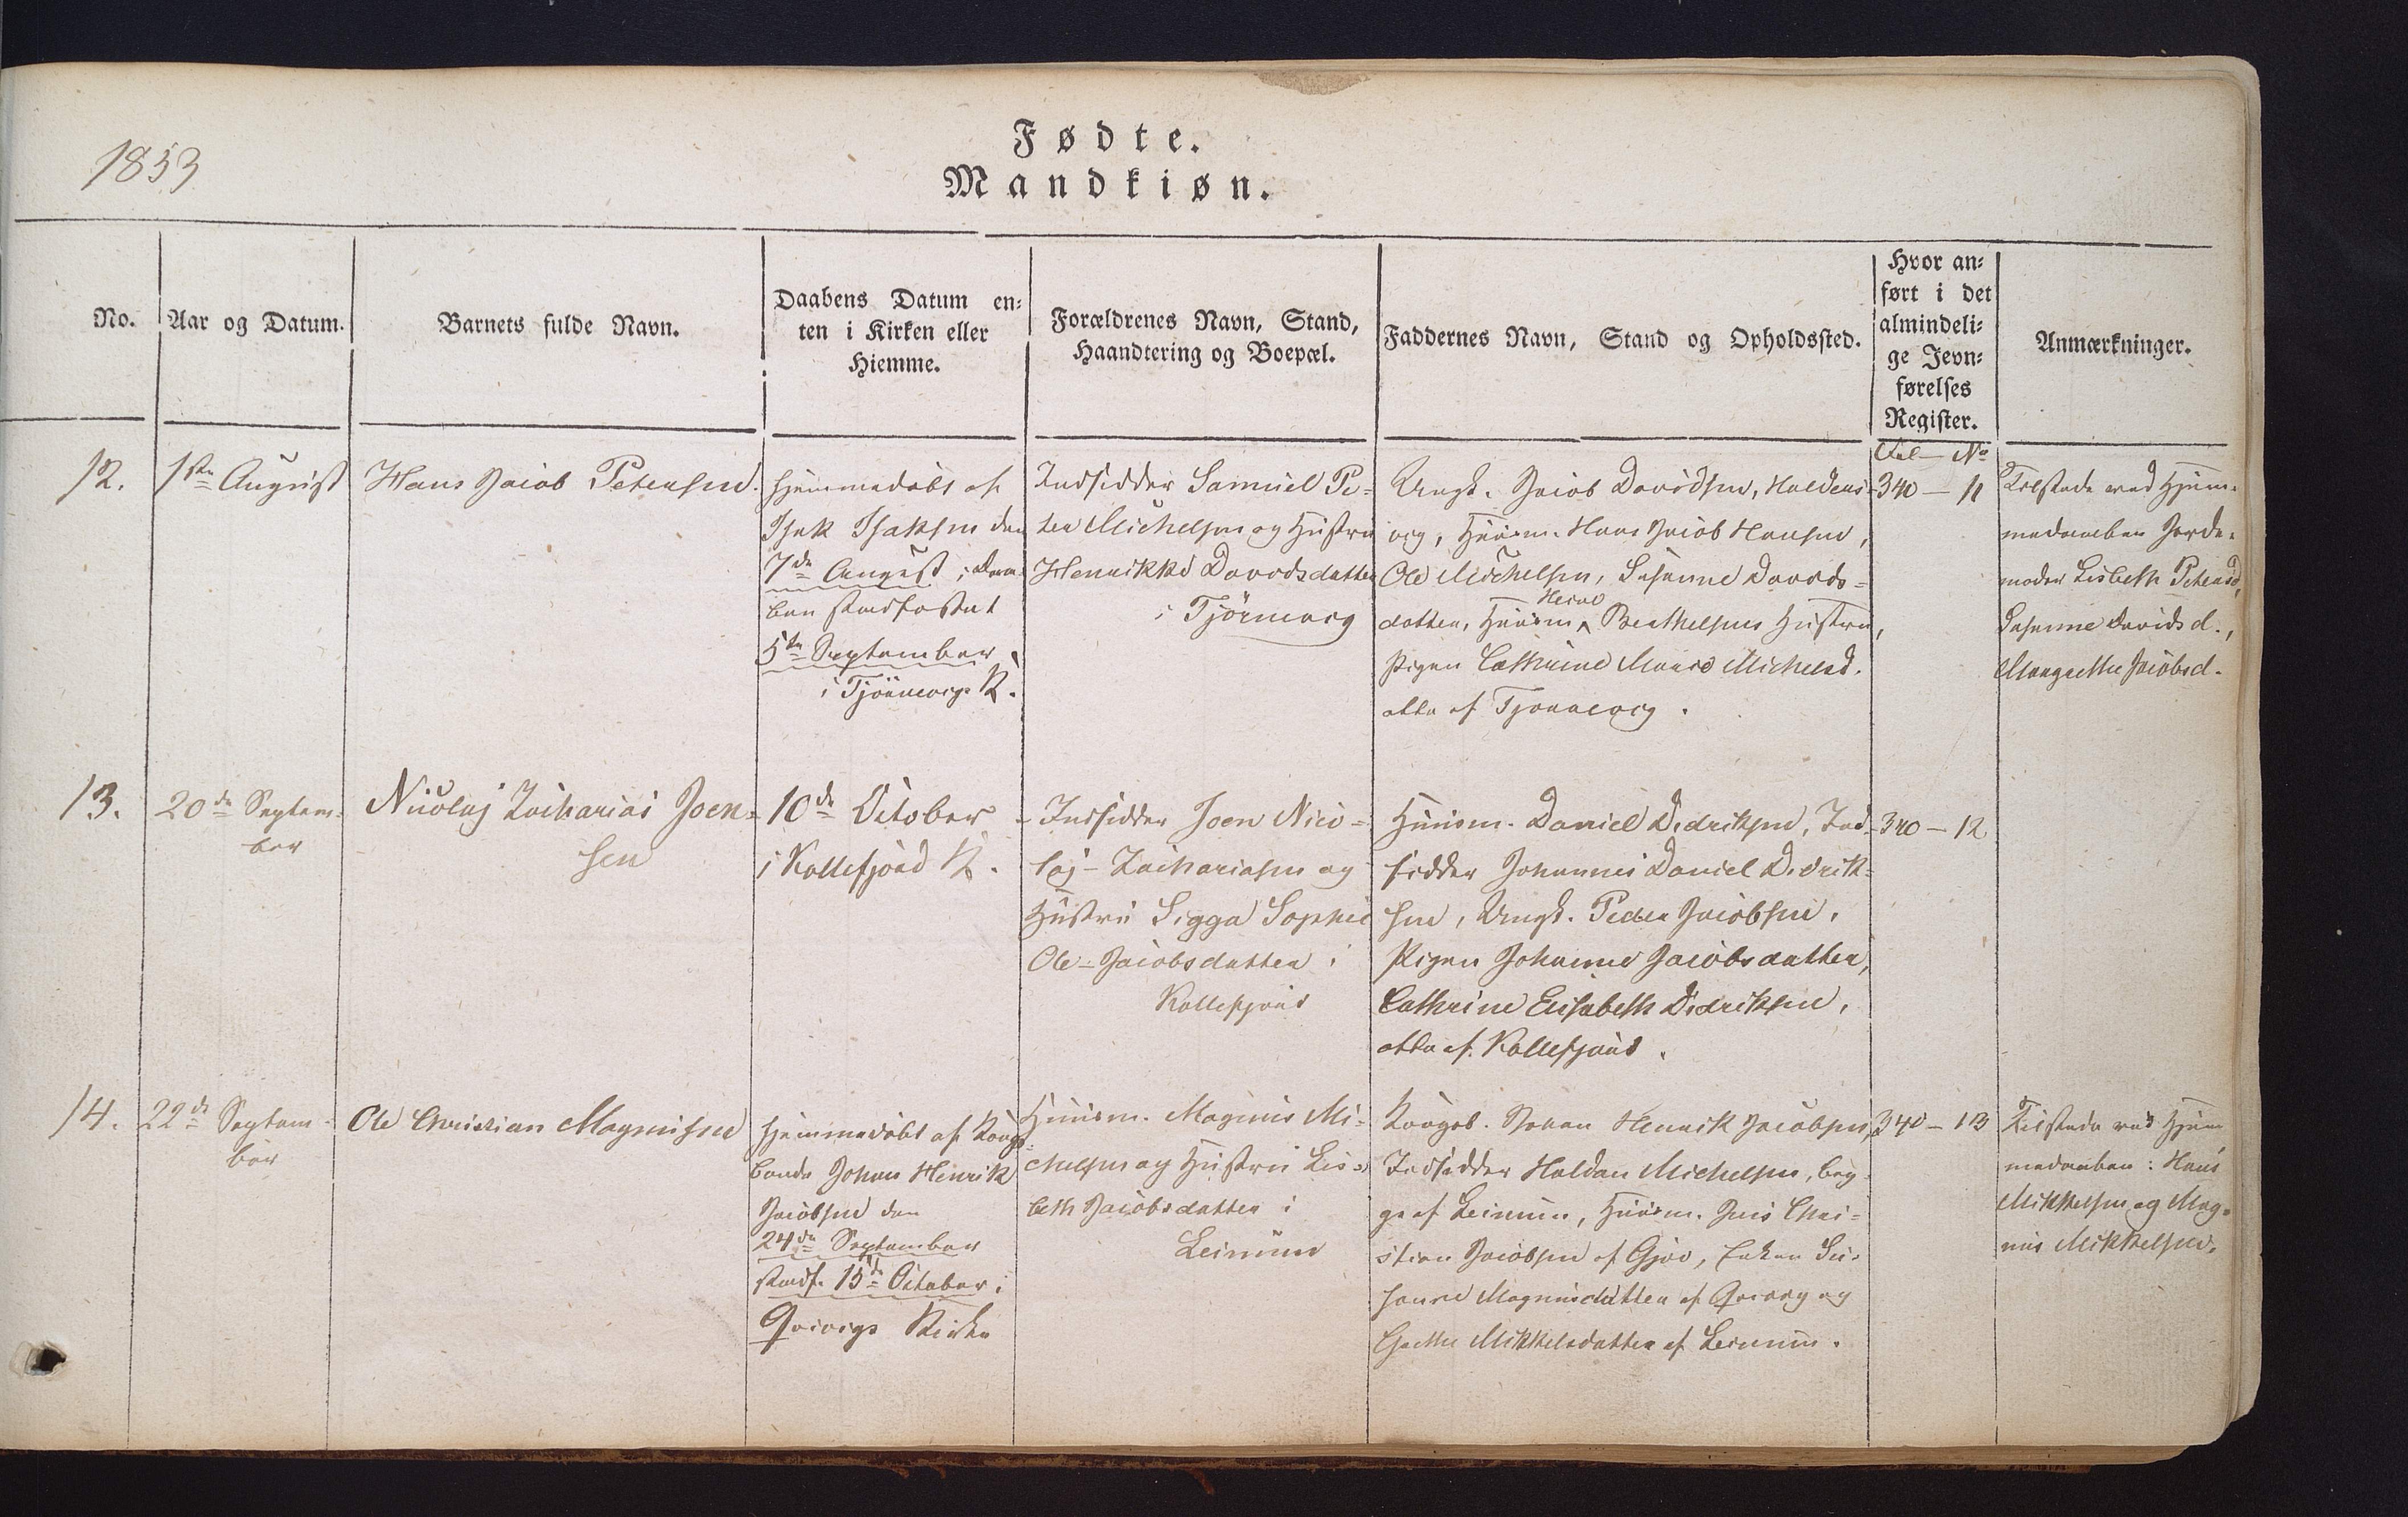 1853
Fødte.
Mandkiøn.
No.
Aar og Datum.
Barnets fulde Navn.
Daabens Datum en-
ten i Kirken eller
Hiemme.
Forældrenes Navn, Stand,
Haandtering og Boepæl.
Faddernes Navn, Stand og Opholdssted.
Hvor an-
ført i det
almindeli-
ge Jevn-
førelses
Register.
Anmærkninger.
Fol — No
12.
1ste August
Hans Jacob Petersen.
Hjemmedøbt af
Isak Isaksen den
7de August; Daa-
ben stadfæstet
5te September
i Tjörnevigs K.
Indsidder Samuel Pe-
ter Michelsen og Hustru
Henrikke Davidsdatter
i Tjörnevig
Ungk. Jacob Davidsen, Halders-
vig, Huusm. Hans Jacob Hansen,
Ole Michelsen, Susanne Davids-
datter, Huusm Berthelsens Hustru,
Pigen Cathrine Marie Michelsd.
alle af Tjörnevig.
340 — 11
Tilstede ved Hjem-
medaaben Jorde-
moder Lisbeth Petersd,
Susanne Davids d.,
Margrethe Jacobsd.
13.
20de Septem-
ber
Nicolaj Zacharias Joen-
sen
10de October
i Kollefjord K.
Indsidder Joen Nico-
laj Zachariasen og
Hustru Sigga Sophie
Ole-Jacobsdatter i
Kollefjord
Huusm. Daniel Didriksen, Ind-
sidder Johannes Daniel Didrik-
sen, Ungk. Peder Jacobsen,
Pigen Johanne Jacobsdatter,
Cathrine Elisabeth Didriksen,
alle af Kollefjord.
340 — 12
14.
22de Septem-
ber
Ole Christian Magnussen
Hjemmedøbt af Kongs-
bonde Johan Henrik
Jacobsen den
24de September
stadf. 15de October i
Qvivigs Kirke
Huusm. Magnus Mi-
chelsen og Hustru Lis-
beth Jacobsdatter i
Leinum
Kongsb. Johan Henrik Jacobsen,
Indsidder Haldan Michelsen, beg-
ge af Leinum, Huusm. Jens Chri-
stian Jacobsen af Gjov, Enken Su-
sanne Magnusdatter af Qvivig og
Grethe Mikkelsdatter af Leinum.
340 — 13
Tilstede ved Hjem
medaaben: Hans
Mikkelsen og Mag-
nus Mikkelsen.